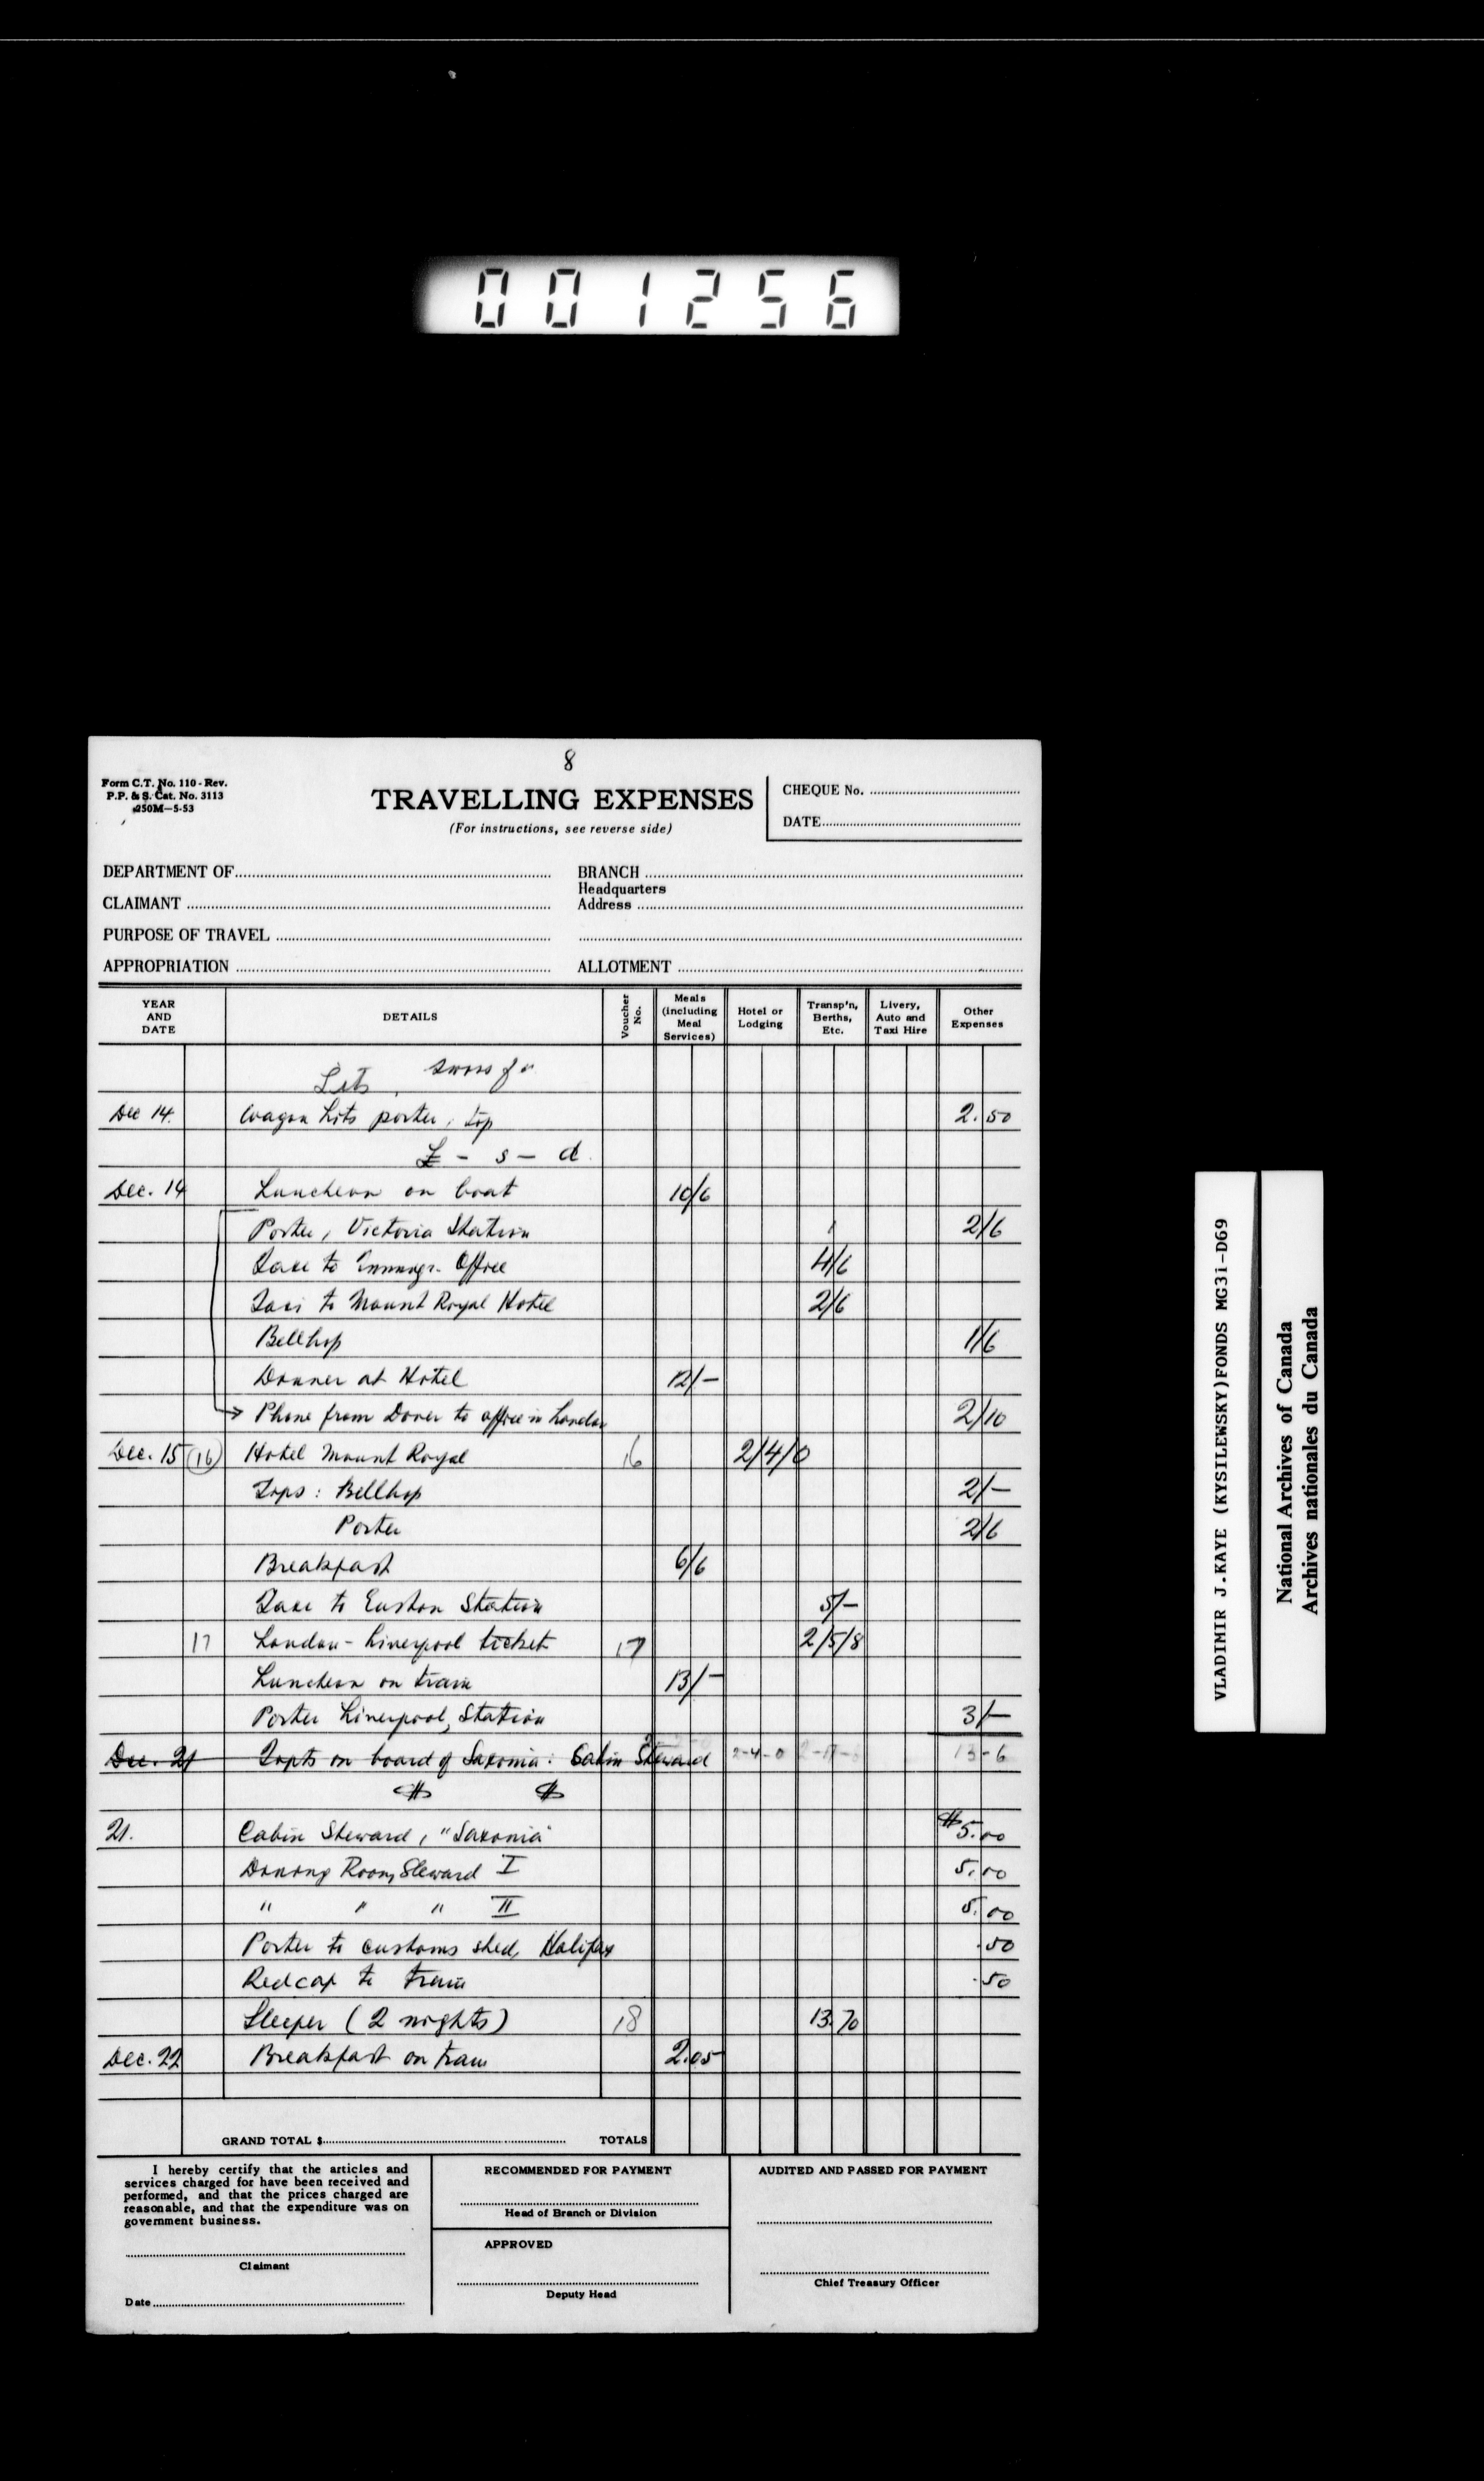 001256
8
Form C.T. No. 110 - Rev.
P.P. & S. Cat. No. 3113
250M-5-53
TRAVELLING EXPENSES
(For instructions, see reverse side)
CHEQUE No.
DATE
DEPARTMENT OF
BRANCH
Headquarters
CLAIMANT
Address
PURPOSE OF TRAVEL
APPROPRIATION
ALLOTMENT
YEAR AND DATE DETAILS Voucher No. Meals (including Meal Services) Hotel or Lodging Transp'n, Berths, Etc. Livery, Auto and Taxi Hire Other Expenses
Lits swiss fr
Dec 14. Wagon Lits porter, tip 2.50
£ - s - d.
Dec. 14 Luncheon on boat 10/6
Porter, Victoria Station 2/6
Taxi to Immigr. Office 4/6
Taxi to Mount Royal Hotel 2/6
Bellhop 1/6
Dinner at Hotel 12/-
Phone from Dover to office in London 2/10
Dec. 15 (16) Hotel Mount Royal 16 2/4/0
Tips: Bellhop 2/-
Porter 2/6
Breakfast 6/6
Taxi to Euston Station 5/-
17 London - Liverpool ticket 17 2/5/8
Luncheon on train 13/-
Porter Liverpool, Station 3/-
Dec. 21 Tips on board of Saxonia: Cabin Steward 2-4-0 2-17- 13-6
$ $
21. Cabin Steward, "Saxonia" $5.00
Dining Room Steward I 5.00
" " " II 5.00
Porter to customs shed, Halifax .50
Redcap to train .50
Sleeper (2 nights) 18 13.70
Dec. 22 Breakfast on train 2.05
GRAND TOTAL $ TOTALS
I hereby certify that the articles and
services charged for have been received and
performed, and that the prices charged are
reasonable, and that the expenditure was on
government business.
Claimant
Date
RECOMMENDED FOR PAYMENT
Head of Branch or Division
APPROVED
Deputy Head
AUDITED AND PASSED FOR PAYMENT
Chief Treasury Officer
VLADIMIR J.KAYE (KYSILEWSKY)FONDS MG31-D69
National Archives of Canada
Archives nationales du Canada